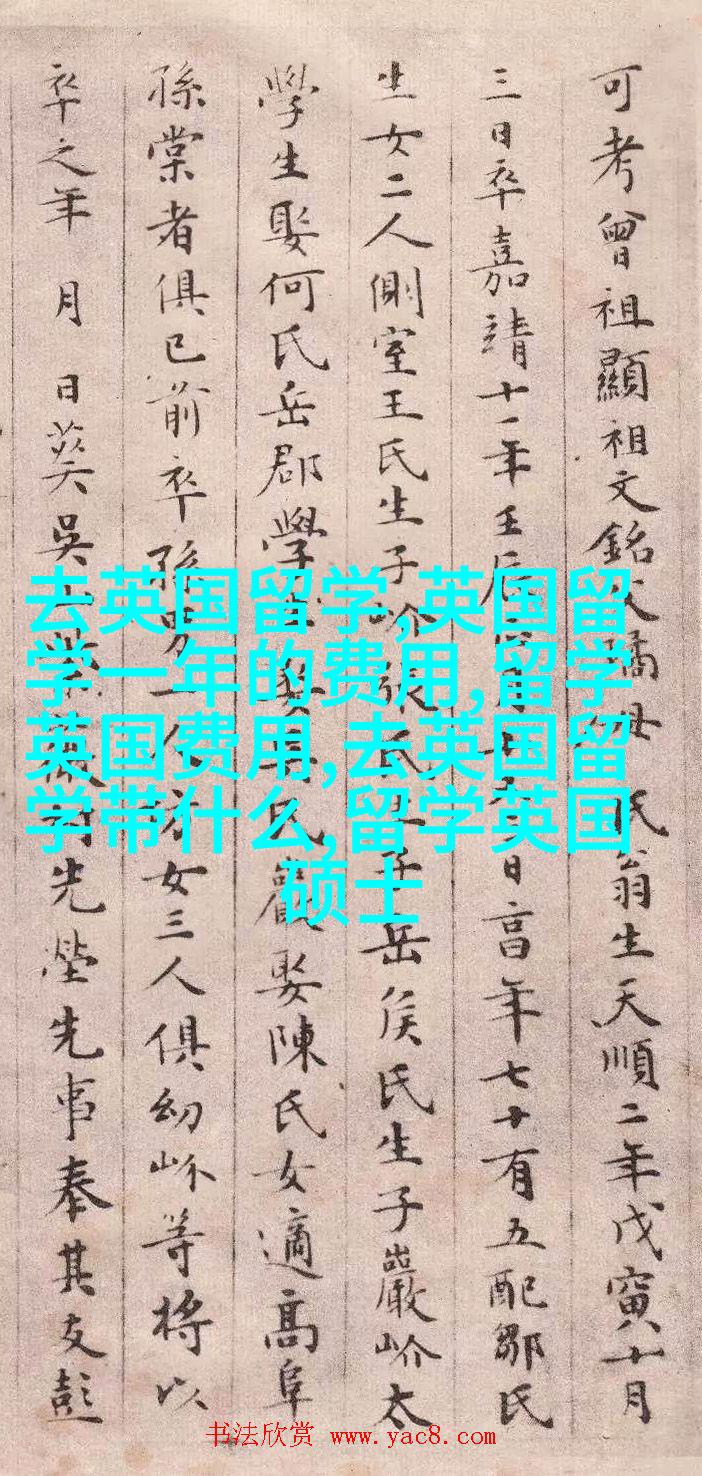 可考曾祖顯祖文銘父璚母 氏翁生天順二年戊寅十月
三日卒嘉靖十一年壬辰 月 日高年七十有五配鄒氏
生女二人側室王氏生子岎張氏生子岳侯氏生子巖岎太
學生娶何氏岳郡學 娶 氏巖娶陳氏女適高阜
孫棠者俱已前卒孫男一人 女三人俱幼岎等將以
卒之年 月 日葬吳 先塋先事奉其友彭
去英国留学,英国留
学一年的费用,留学
英国费用,去英国留
学带什么,留学英国
硕士
书法欣赏 www.yac8.com